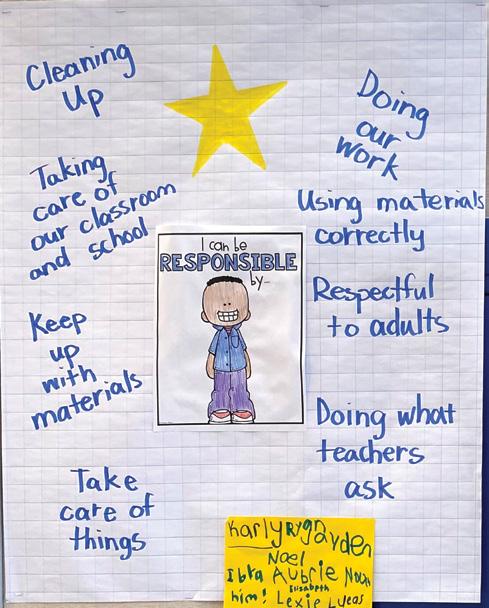 Cleaning
Up
Taking
care of
our classroom
and school
Keep
up
with
materials
Take
care of
things
I can be
RESPONSIBLE
by-
Doing
our
work
Using materials
correctly
Respectful
to adults
Doing what
teachers
ask
Karly
Noel
Aubrie
him!
Elisabeth
Lexie Lucas